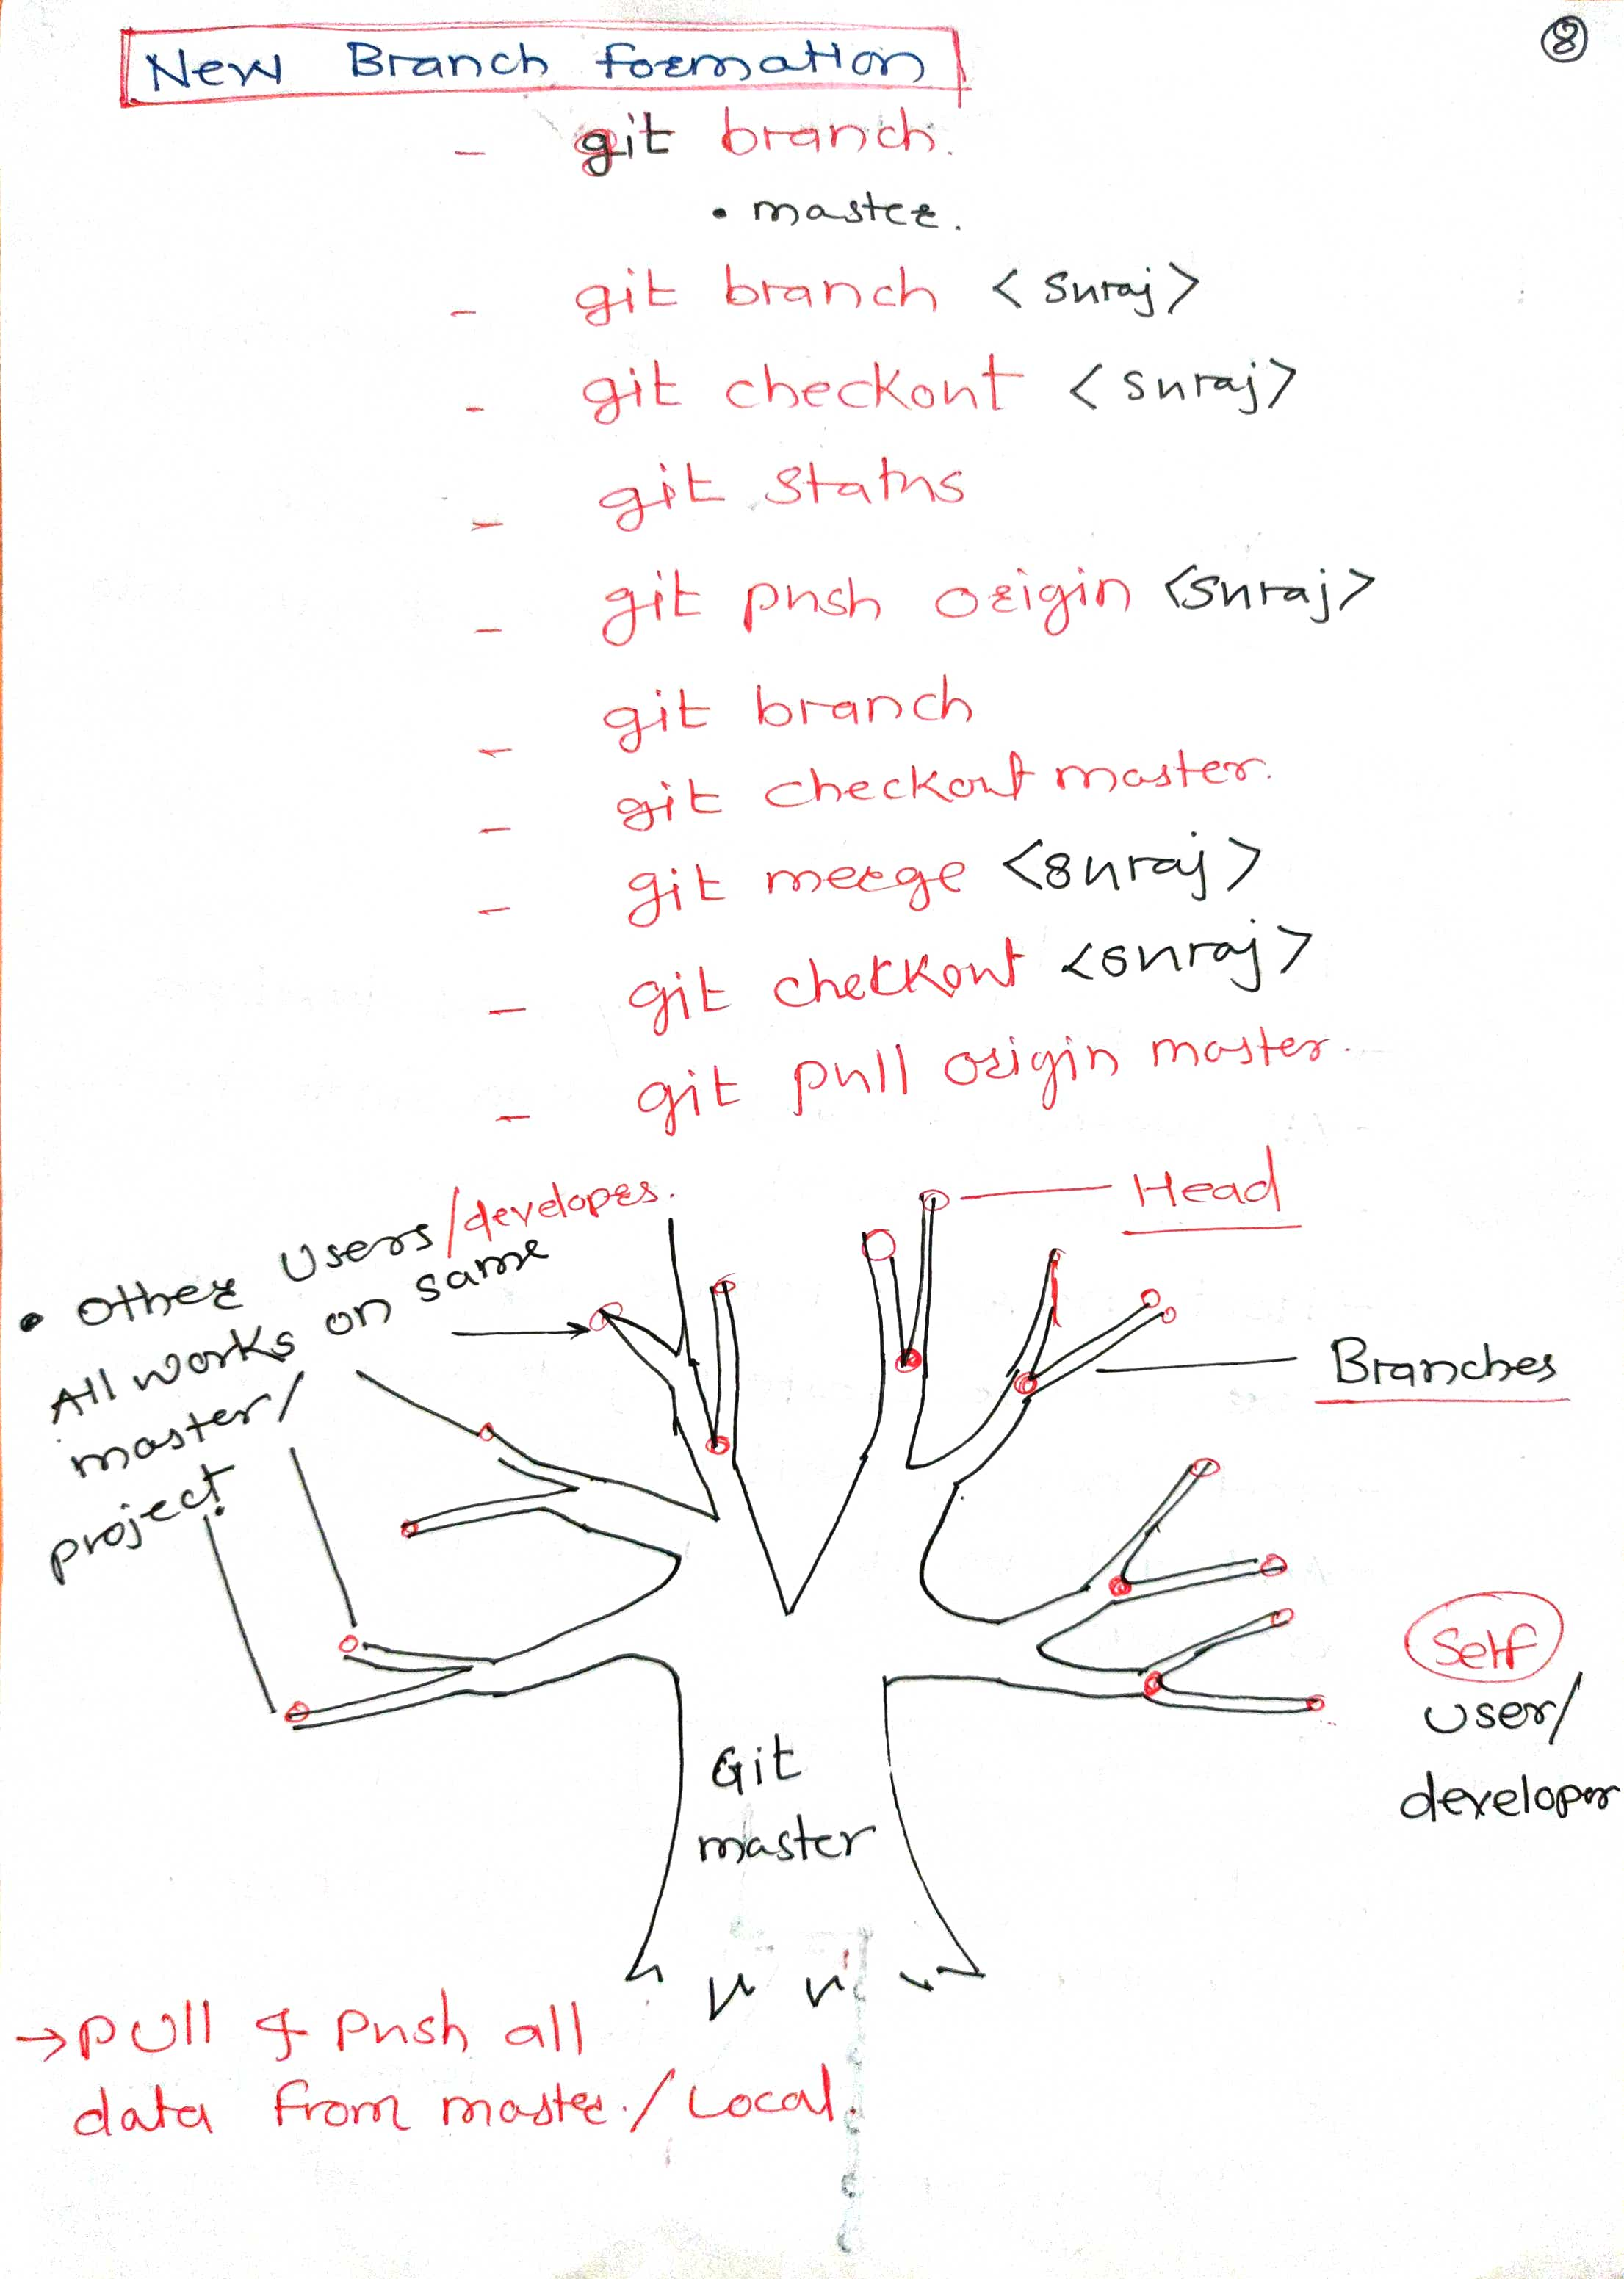 8
New Branch formation
- git branch.
• master.
- git branch <suraj>
- git checkout <suraj>
- git status
- git push origin <suraj>
- git branch
- git checkout master.
- git merge <suraj>
- git checkout <suraj>
- git pull origin master.
• Other users/developes.
All works on same
master/
project
Head
Branches
Self
user/
developer
Git
master
→ pull & push all
data from master./Local.